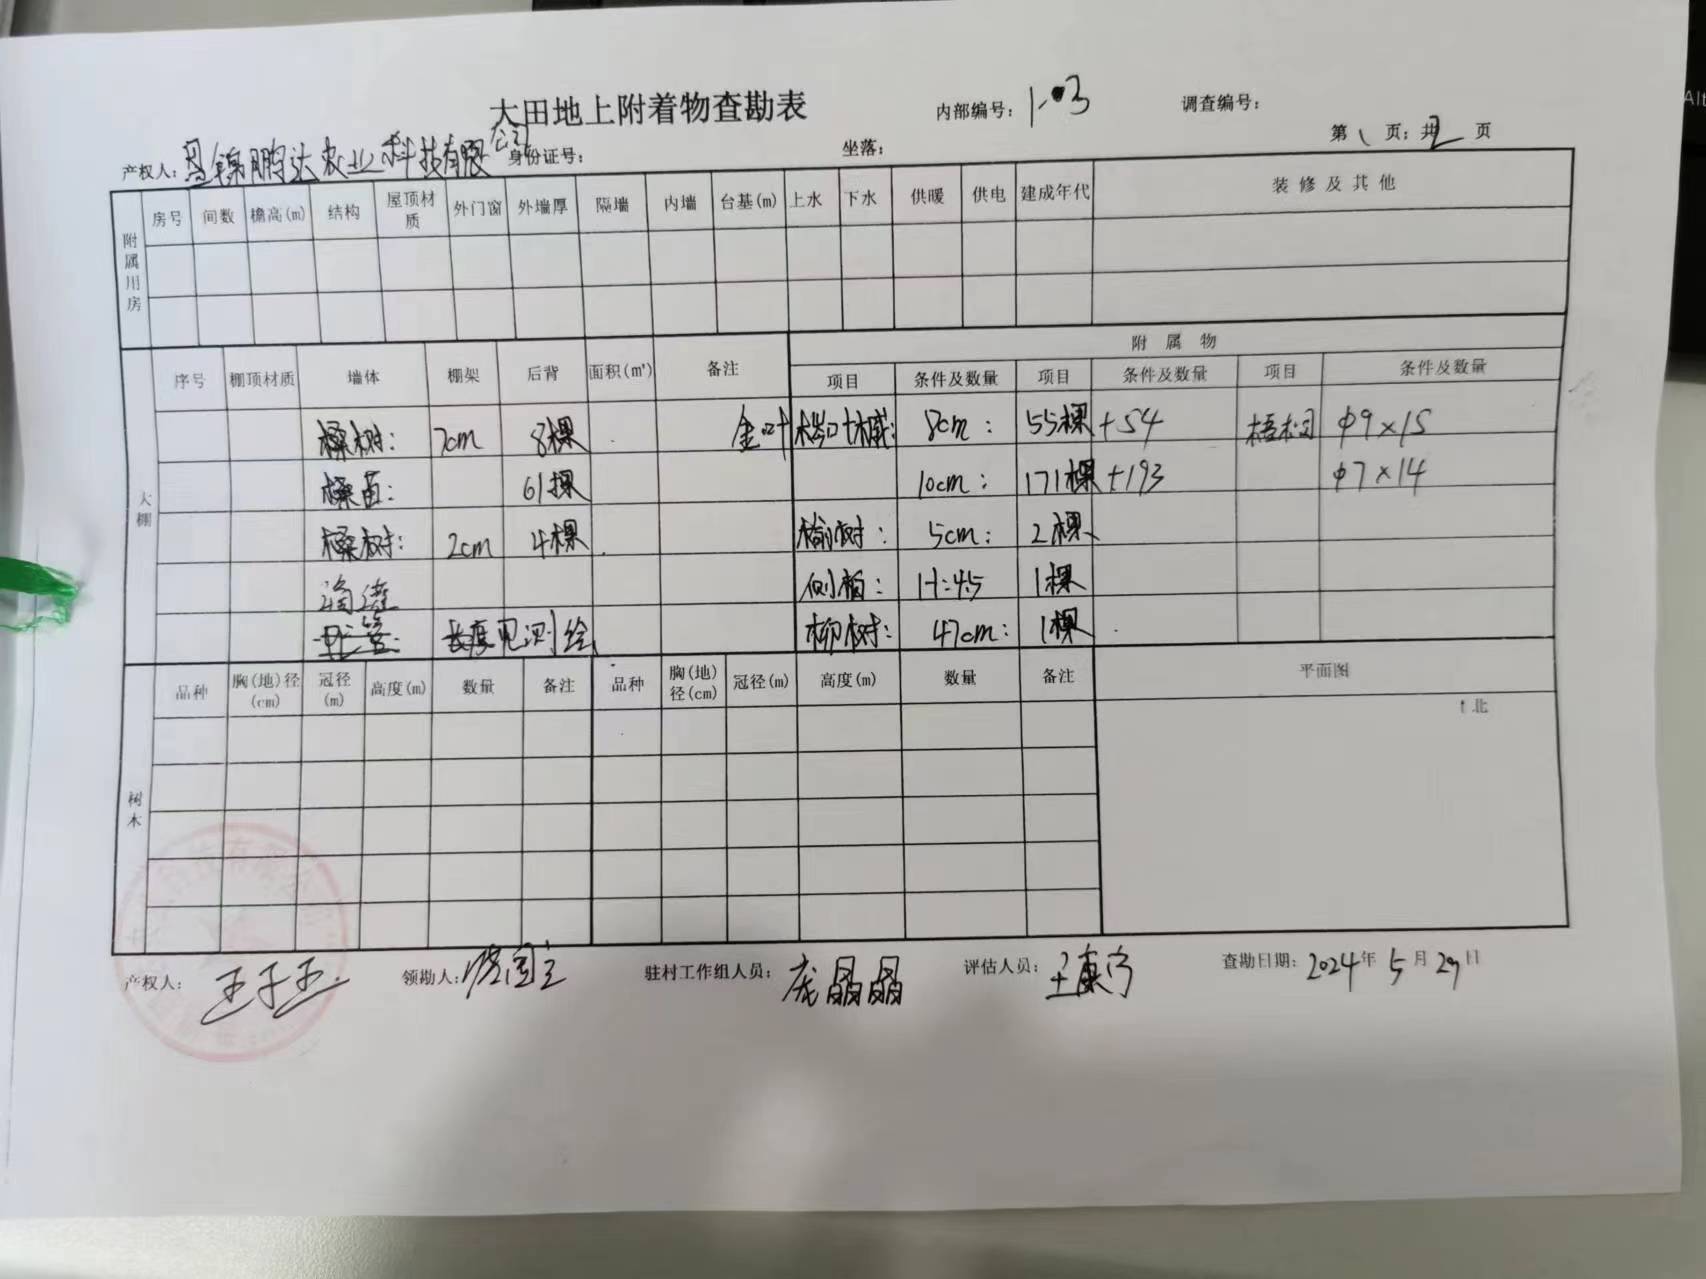 大田地上附着物查勘表
内部编号: 1-03 调查编号:
第 1 页; 共 2 页
产权人: 锦鹏达农业科技有限公司 身份证号: 坐落:
附属用房
房号 间数 檐高(m) 结构 屋顶材质 外门窗 外墙厚 隔墙 内墙 台基(m) 上水 下水 供暖 供电 建成年代 装修及其他
大棚
序号 棚顶材质 墙体 棚架 后背 面积(㎡) 备注 附属物
项目 条件及数量 项目 条件及数量 项目 条件及数量
桑树: 7cm 8棵 金叶 槭: 8cm: 55棵 +54 Φ9×15
桑苗: 61棵 10cm: 171棵 +193 Φ7×14
桑树: 2cm 4棵 榆树: 5cm: 2棵
侧柏: H:4.5 1棵
长度见测绘 柳树: 47cm: 1棵
树木
品种 胸(地)径(cm) 冠径(m) 高度(m) 数量 备注 品种 胸(地)径(cm) 冠径(m) 高度(m) 数量 备注 平面图
↑北
产权人: 王子玉 领勘人: 驻村工作组人员: 庞晶晶 评估人员: 王康宁 查勘日期: 2024年5月29日